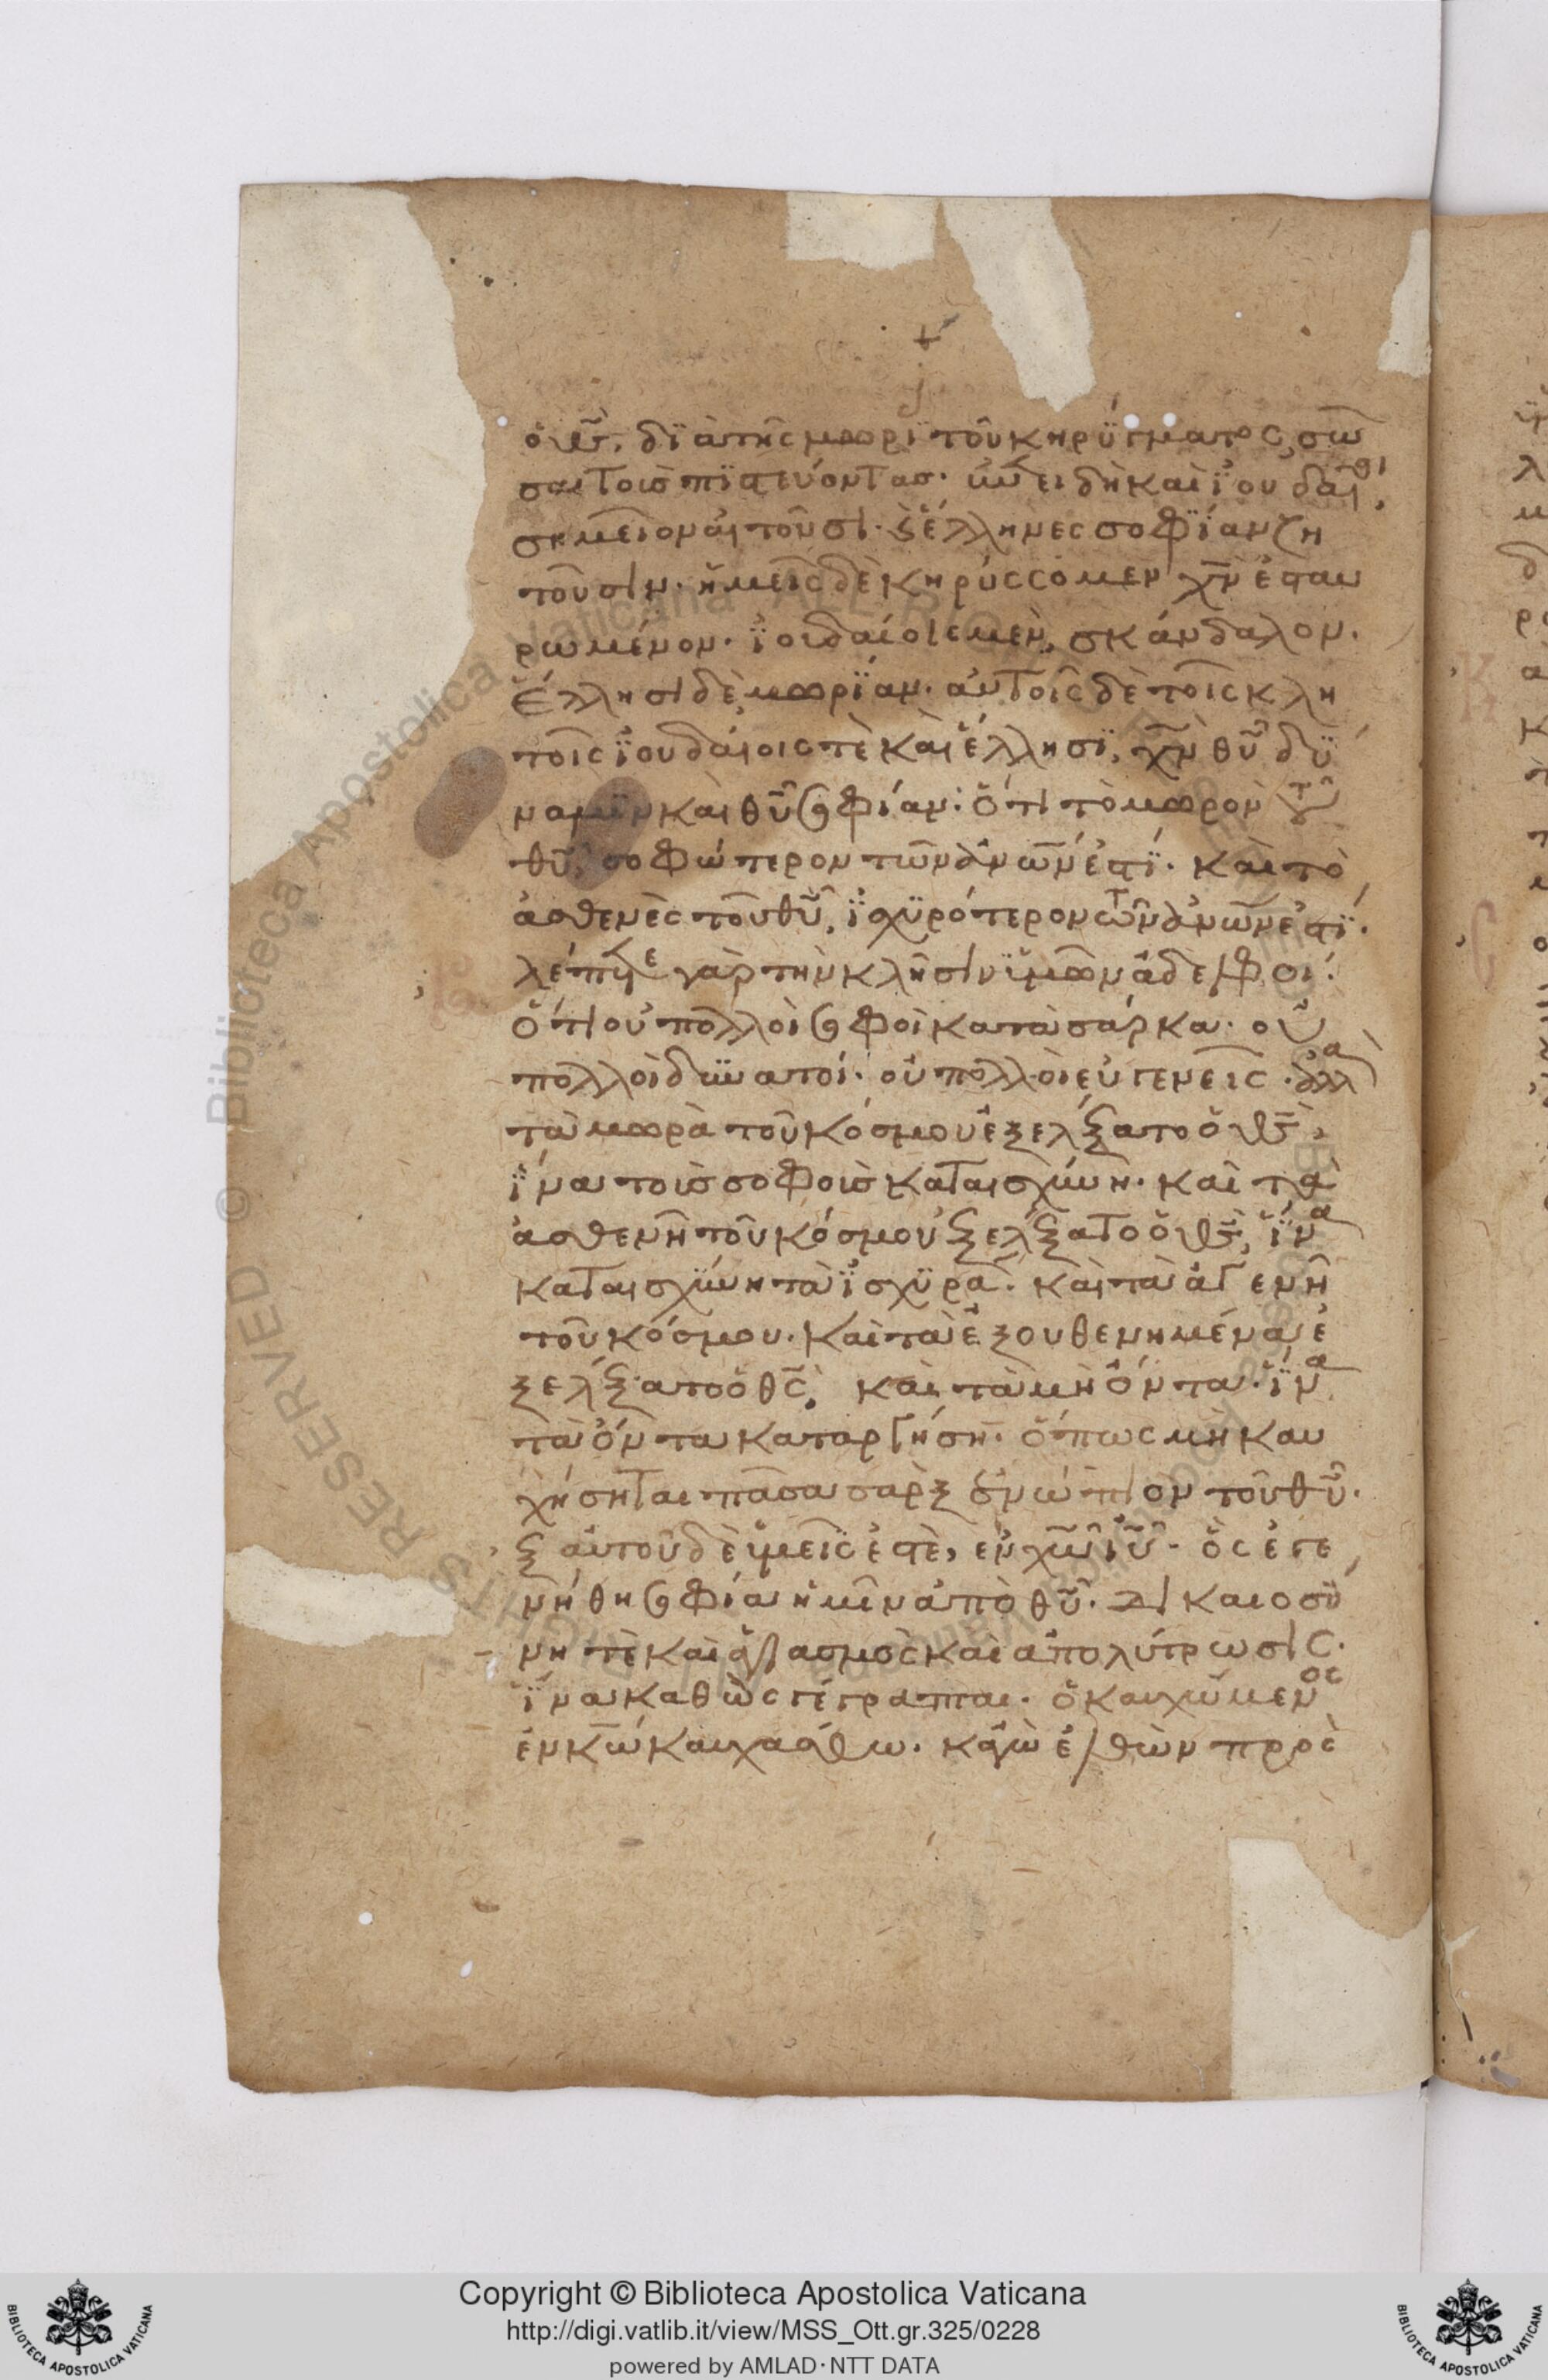 ὁ θς̅, διὰ τῆς μωρΐ τοῦ κηρϋγματος, σῶ
σαι τοὺς πϊστεύοντας. ἐπειδὴ καὶ ϊουδαῖοι,
σημεῖον αἰτοῦσι. καὶ ἕλληνες σοφΐαν ζη
τοῦσιν. ἡμεῖς δὲ κηρύσσομεν χν̅ ἐσταυ
ρωμένον. ϊουδαίοις μὲν, σκάνδαλον.
ἕλλησι δὲ μωρΐαν. αὐτοῖς δὲ τοῖς κλη
τοῖς ϊουδαίοις τὲ καὶ ἕλλησϊ, χν̅ θυ̅ δϋ
ναμϊν καὶ θυ̅ σοφίαν. ὅτι τὸ μωρὸν τοῦ
θυ̅, σοφώτερον τῶν ἀνω̅ν ἐστΐ. καὶ τὸ
ἀσθενὲς τοῦ θυ̅, ϊσχϋρότερον τῶν ἀνω̅ν ἐστΐ.
λέπετε γὰρ τὴν κλῆσιν ϋμῶν ἀδελφοι.
ὅτι οὐ πολλοὶ σοφοὶ κατὰ σάρκα. οὐ
πολλοὶ δϋνατοί. οὐ πολλοὶ εὐγενεῖς. ἀλλὰ
τὰ μωρὰ τοῦ κόσμου ἐξελέξατο ὁ θς̅,
ΐνα τοὺς σοφοὺς καταισχϋνη. καὶ τὰ
ἀσθενῆ τοῦ κόσμου ἐξελέξατο ὁ θς̅, ΐνα
καταισχϋνη τὰ ϊσχϋρά. καὶ τὰ ἀγενῆ
τοῦ κόσμου. καὶ τὰ ἐξουθενημένα ἐ
ξελέξατο ὁ θς̅, καὶ τὰ μὴ ὄντα. ΐνα
τὰ ὄντα καταργήση. ὅπως μὴ καυ
χήσηται πᾶσα σαρξ ἐνώπιον τοῦ θυ̅.
ἐξ αὐτοῦ δὲ ϋμεῖς ἐστὲ, ἐν χω̅ ιυ̅. ὃς ἐγε
νήθη σοφία ἡμῖν ἀπὸ θυ̅. δικαιοσϋ
νη τὲ καὶ ἁγιασμὸς καὶ ἀπολύτρωσις.
ΐνα καθὼς γέγραπται. ὁ καυχώμενος
ἐν κω̅ καυχάσθω. κἀγὼ ἐλθὼν πρὸς
Copyright © Biblioteca Apostolica Vaticana
http://digi.vatlib.it/view/MSS_Ott.gr.325/0228
powered by AMLAD·NTT DATA